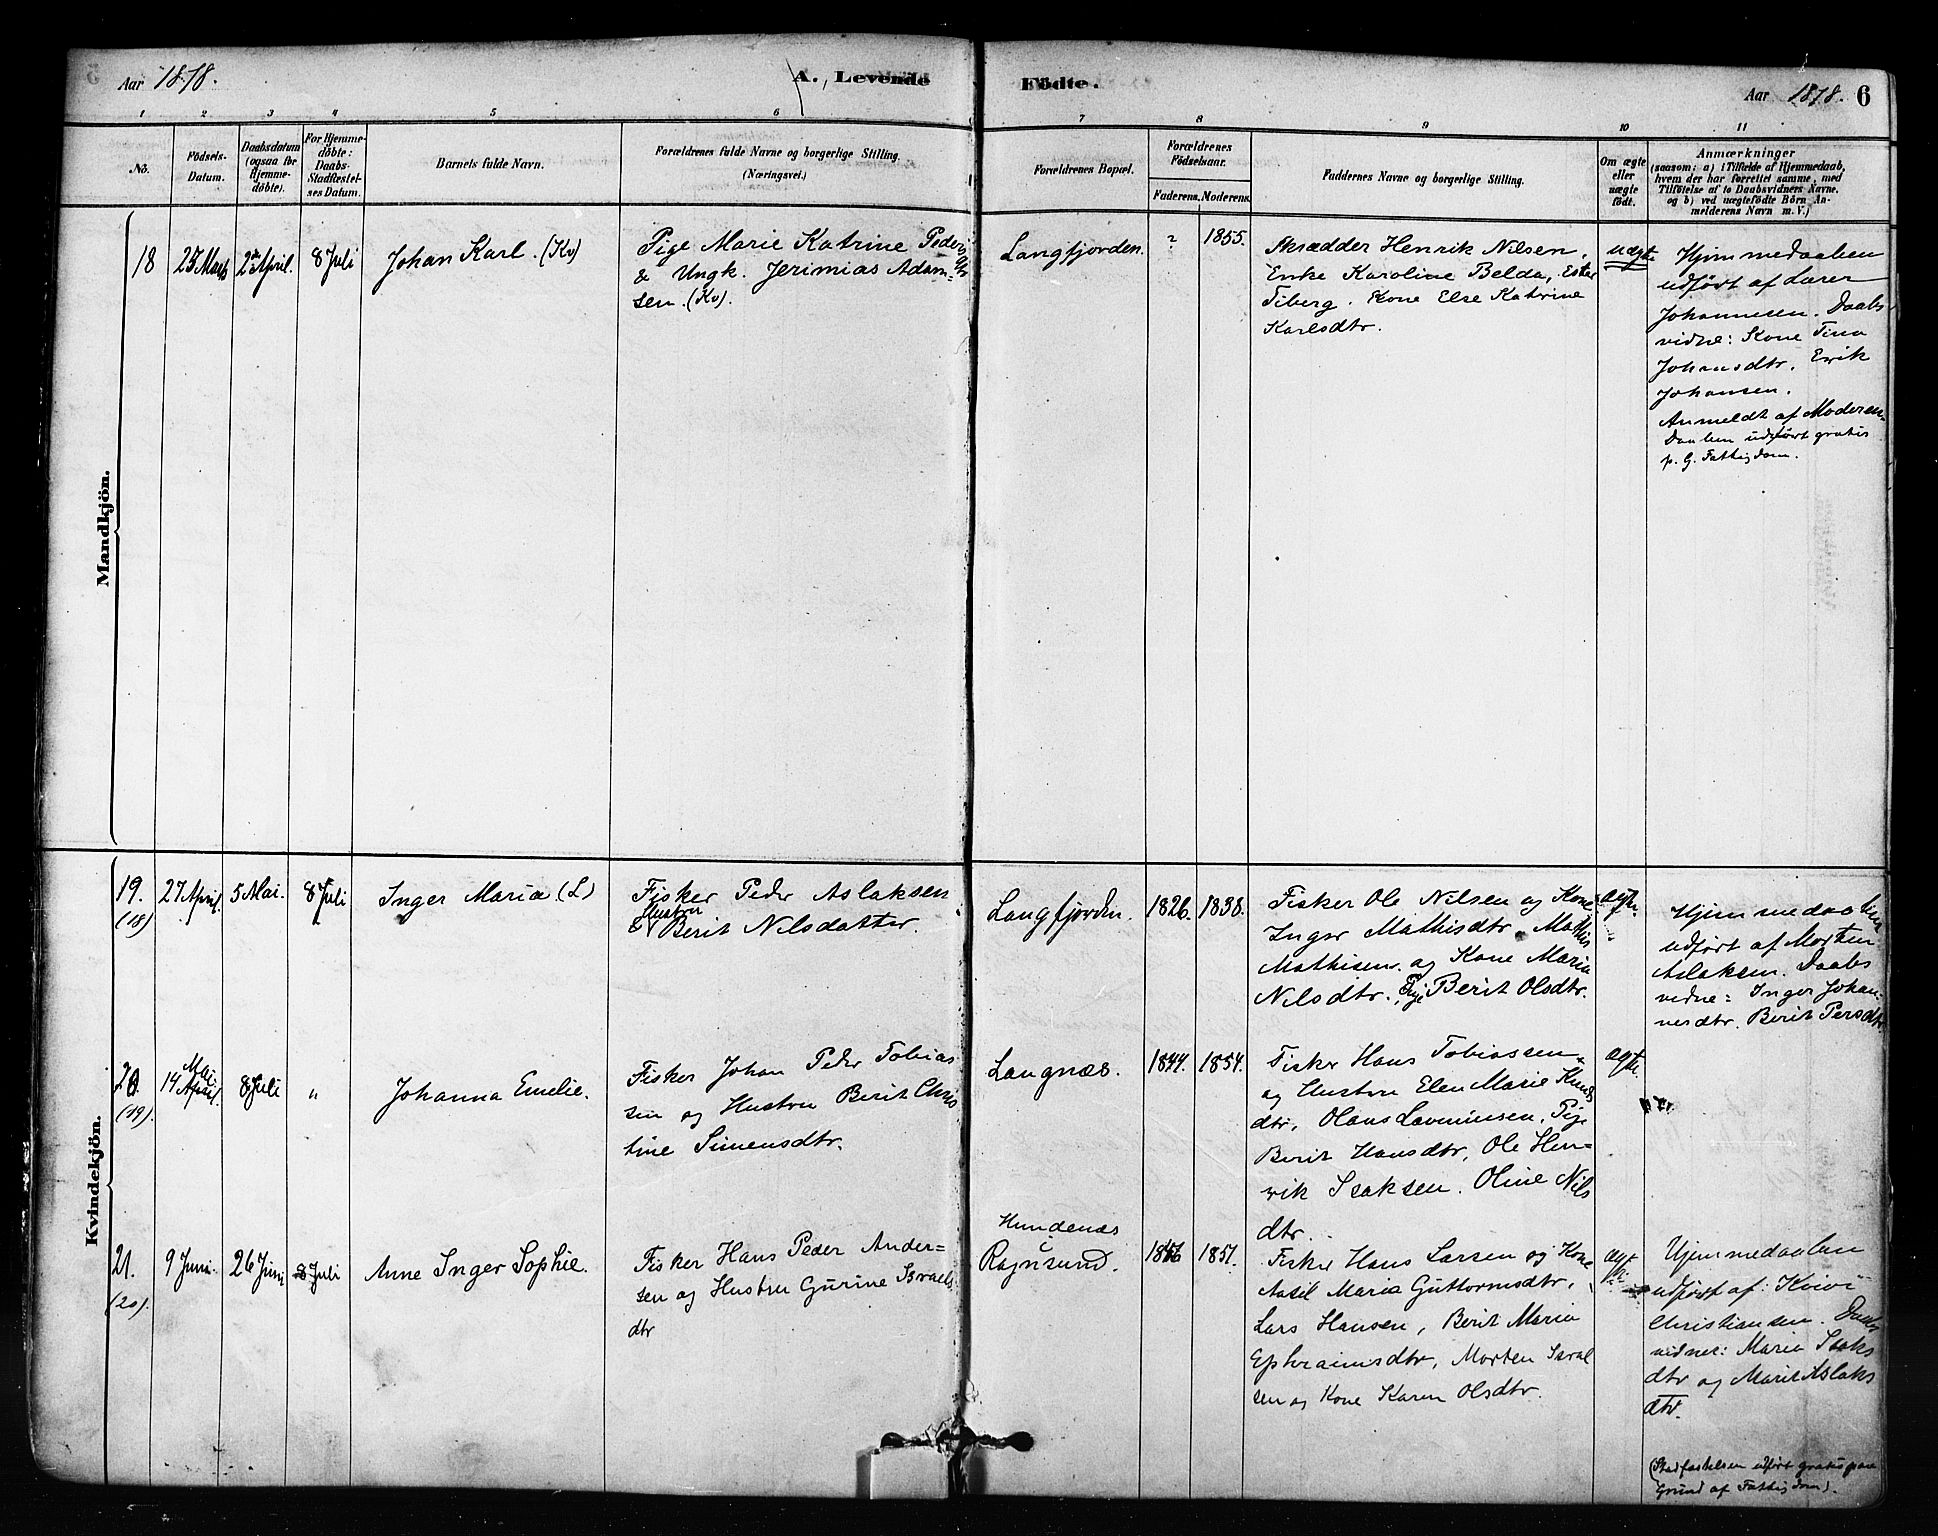 Aar 1878.
A. Levende
Födte.
Aar 1878. 6
1 2 3 4 5 6 7 8 9 10 11
No.
Födsels-
Datum.
Daabsdatum
(ogsaa for
Hjemme-
döbte).
For Hjemme-
döbte:
Daabs-
Stadfæstel-
ses Datum.
Barnets fulde Navn.
Forældrenes fulde Navne og borgerlige Stilling.
(Næringsvei.)
Forældrenes Bopæl.
Forældrenes
Födselsaar.
Faderens. Moderens.
Faddernes Navne og borgerlige Stilling.
Om ægte
eller
uægte
födt.
Anmærkninger
(saasom: a) i Tilfælde af Hjemmedaab,
hvem der har forrettet samme, med
Tilföielse af to Daabsvidners Navne.
og b) ved uægtefödte Börn An-
melderens Navn m. V.)
Mandkjön.
18
25 Marts
2den April.
8 Juli
Johan Karl. (Kv)
Pige Marie Katrine Peders
dtr
& Ungk. Jerimias Adam-
sen. (Kv).
Langfjorden.
?
1855.
Skrædder Henrik Nilsen,
Enke Karoline Belda, Ester
Tiberg. Kone Else Katrine
Karlsdtr.
uægte
Hjemmedaaben
udført af Lærer
Johannesen. Daabs
vidne: Kone Tina
Johansdtr. Erik
Johansen.
Anmeldt af Moderen-
Daaben udført gratis
p. G. Fattigdom.
Kvindekjön.
19.
(18)
27 April.
5 Mai.
8 Juli
Inger Maria (L)
Fisker Peder Aslaksen
& Hustru
Berit Nilsdatter.
Langfjorden.
1826.
1838.
Fisker Ole Nilsen og Kone
Inger Mathisdtr. Mathis
Mathisen. og Kone Maria
Nilsdtr., Pige Berit Olsdtr.
ægte.
Hjemmedaaben
udført af Morten
Aslaksen. Daabs
vidne: Inger Johan-
nesdtr. Berit Persdtr
20.
(19).
Mai
14 April.
8 Juli
"
Johanna Emelie.
Fisker Johan Peder Tobias
sen og Hustru Berit Chris
tine Simensdtr.
Langnæs.
1844.
1854.
Fisker Hans Tobiassen
og Hustru Elen Marie Knuds
dtr, Olans Pige
Berit Hansdtr, Ole Hen-
rik Isaksen. Oline Nils
dtr.
ægte.
21.
(20).
9 Juni.
26 Juni
8 Juli
Anne Inger Sophie.
Fisker Hans Peder Ander-
sen og Hustru Gurine Israels
dtr
Hundenæs
i
Rognsund.
1851.
Fisker Hans Larsen og Kone
Aasil Maria Guttormsdtr,
Lars Hansen, Berit Maria
Ephraimsdtr, Morten Israel
sen og Kone Karen Olsdtr.
ægte
Hjemmedaaben
udført af: Kvivi
Christiansen. Daabs
vidner: Maria Isaks
dtr og Marit Aslaks
dtr.
(Stadfæstelsen udført gratis paa
Grund af Fattigdom).